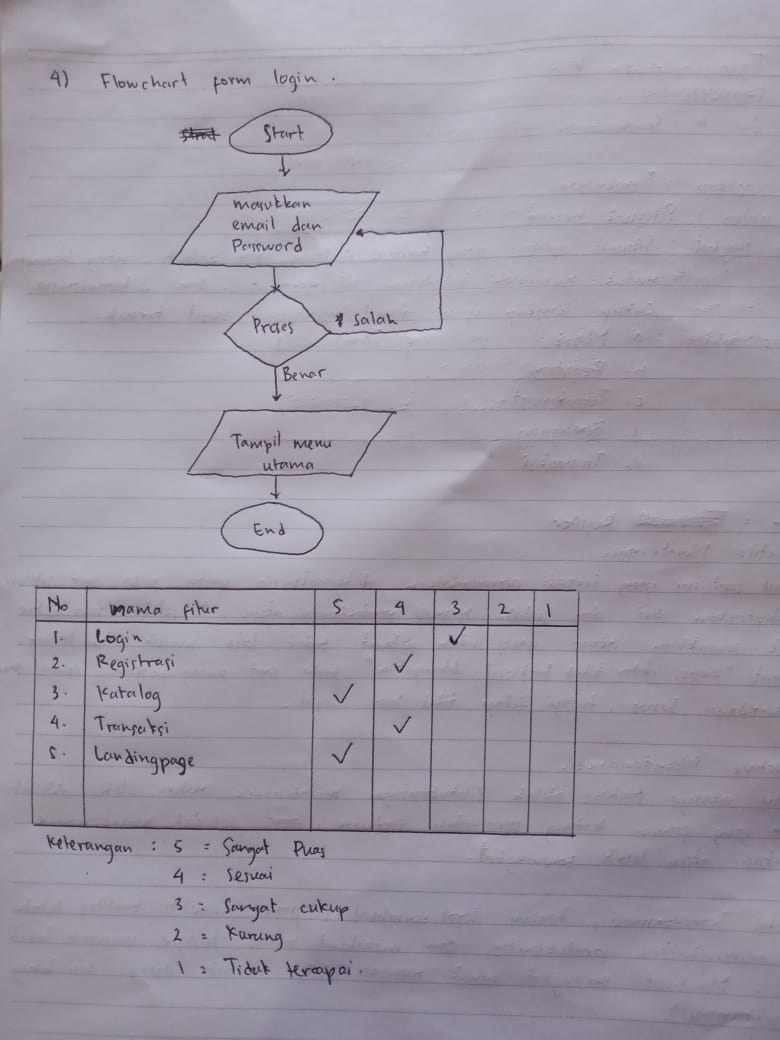 4) Flowchart form login.
Start
masukkan
email dan
Password
Proses
salah
Benar
Tampil menu
utama
End
No nama fitur 5 4 3 2 1
1. Login ✓
2. Registrasi ✓
3. Katalog ✓
4. Transaksi ✓
5. Landingpage ✓
Keterangan : 5 = Sangat Puas
4 : Sesuai
3 : Sangat cukup
2 = Kurang
1 : Tidak tercapai.